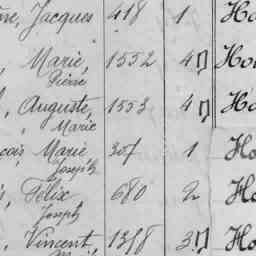 Jacques 418 1 Ho
Marie, 1552 4 Ho
Pierre
Auguste, 1553 4 Ho
Marie
Marie 307 1 Ho
Joseph
Félix, 680 2 Ho
Joseph
Vincent, 1318 3 Ho